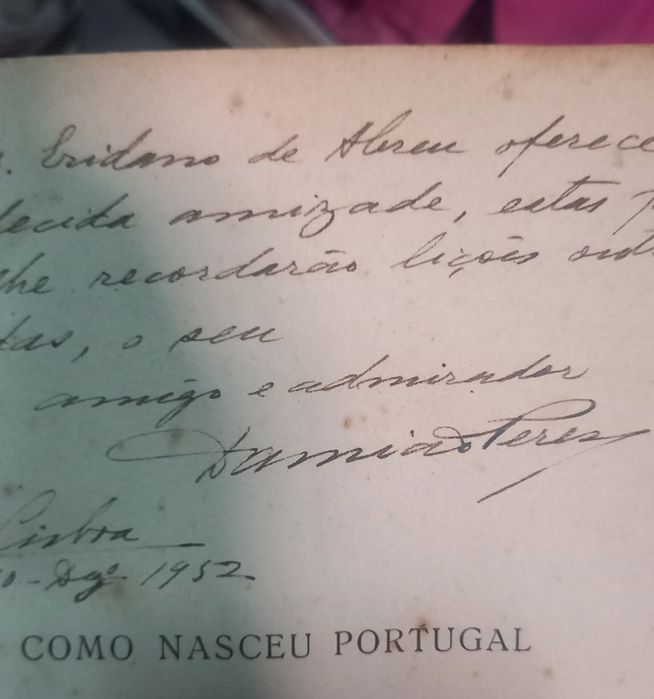 . Eridano de Abreu oferece
decida amizade, estas p
lhe recordarão lições out
das, o seu
amigo e admirador
Damião Peres
Lisboa
10-Dezº 1952
COMO NASCEU PORTUGAL